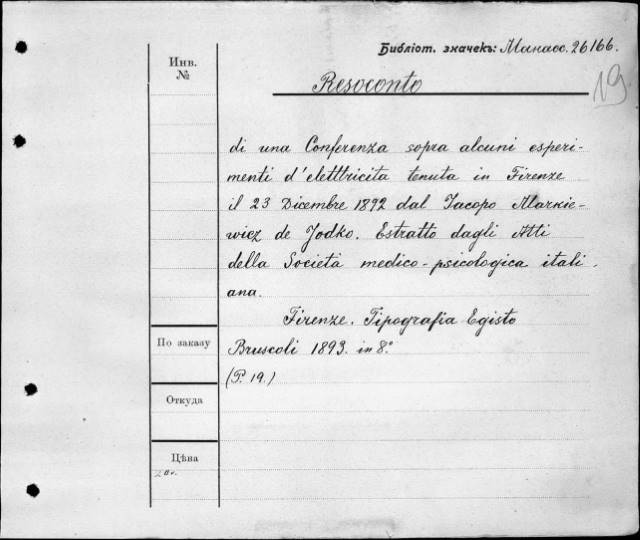 Библіот. значекъ: Манасс. 26166.
19
Инв.
№
Resoconto
di una Conferenza sopra alcuni esperi-
menti d'elettricita tenuta in Firenze
il 23 Dicembre 1892 dal Iacopo Markie-
wicz de Jodko. Estratto dagli Atti
della Società medico-psicologica itali-
ana.
Firenze. Tipografia Egisto
По заказу
Bruscoli 1893. in 8.°
(P. 19.)
Откуда
Цѣна